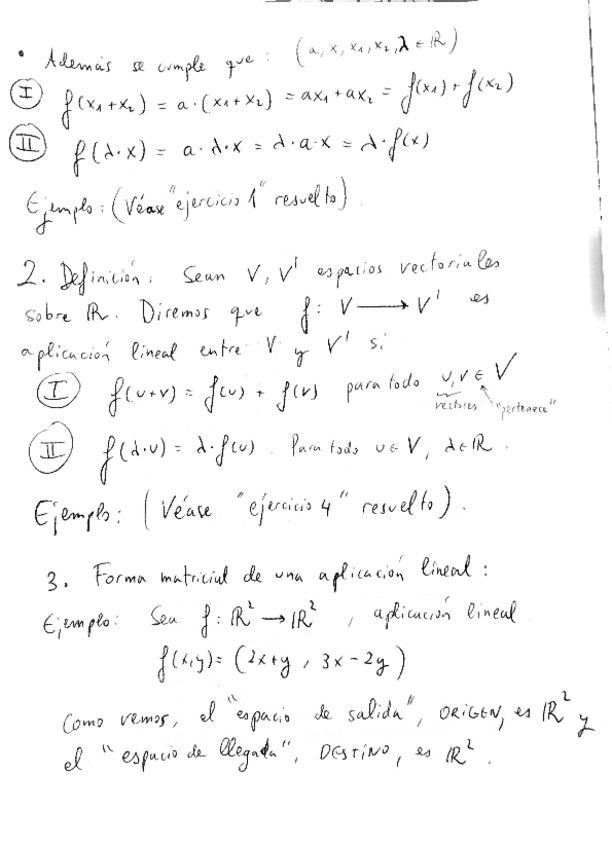 • Además se cumple que: (a, x, x₁, x₂, λ ∈ ℝ)
Ⓘ f(x₁+x₂) = a·(x₁+x₂) = ax₁+ax₂ = f(x₁)+f(x₂)
Ⅱ f(λ·x) = a·λ·x = λ·a·x = λ·f(x)
Ejemplo: (Véase "ejercicio 1" resuelto).
2. Definición: Sean V, V' espacios vectoriales
sobre ℝ. Diremos que f: V ⟶ V' es
aplicación lineal entre V y V' si
Ⓘ f(u+v) = f(u) + f(v) para todo u,v ∈ V
vectores "pertenece"
Ⅱ f(λ·u) = λ·f(u). Para todo u ∈ V, λ ∈ ℝ.
Ejemplo: (Véase "ejercicio 4" resuelto).
3. Forma matricial de una aplicación lineal:
Ejemplo: Sea f: ℝ² → ℝ², aplicación lineal
f(x,y) = (2x+y, 3x-2y)
Como vemos, el "espacio de salida", ORIGEN, es ℝ² y
el "espacio de llegada", DESTINO, es ℝ².